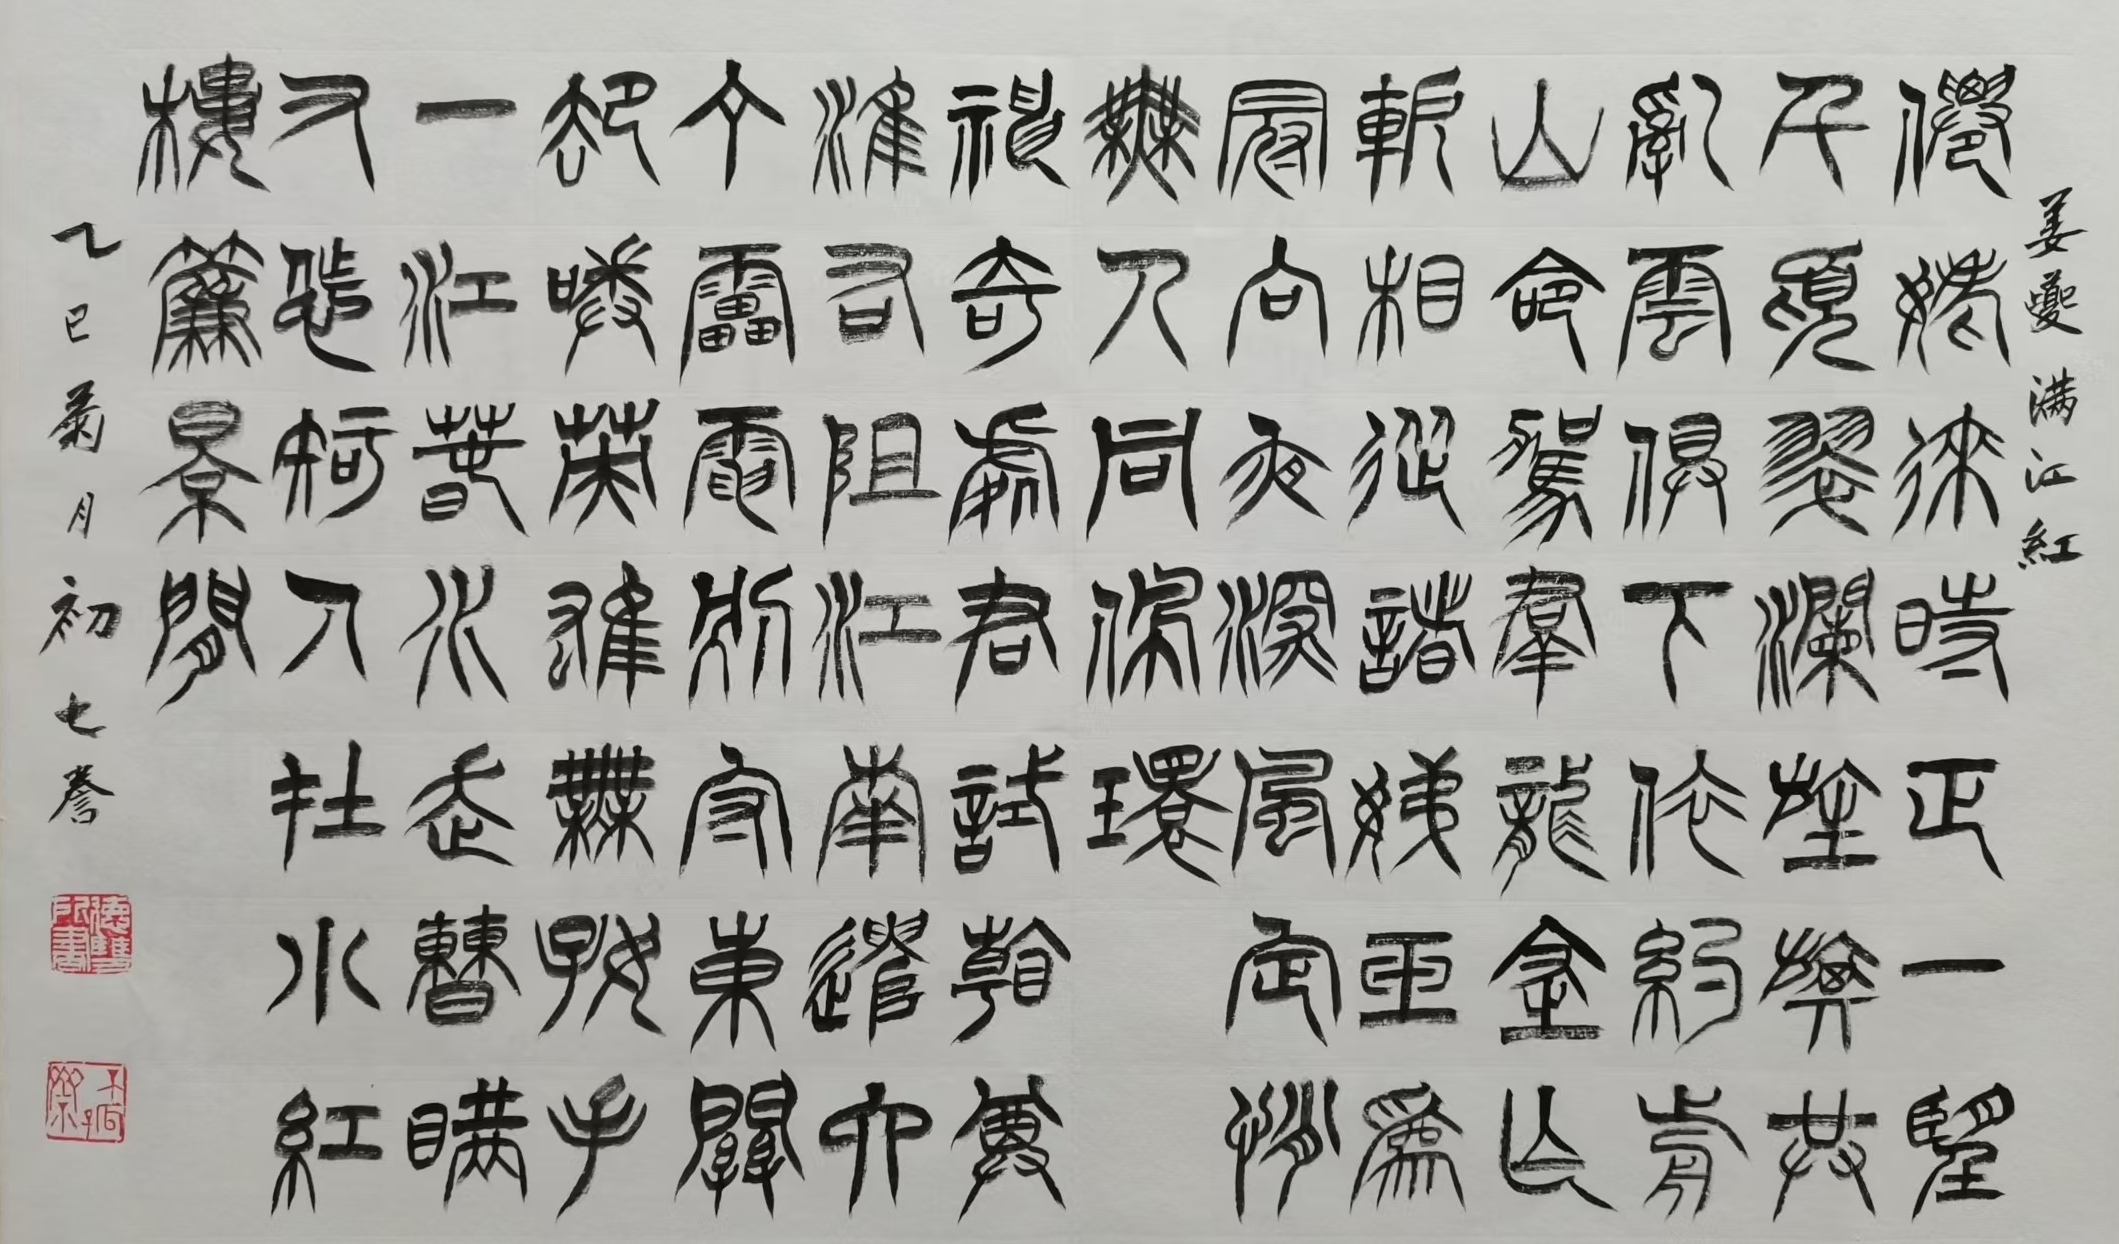 姜夔 满江紅
僊姥徠時正一望
千頃翠瀾旌旗共
亂雲俱下依約前
山命駕羣龍金作
軛相從諸娣玉爲
冠向夜深風定悄
無人同佩環
神奇處君試看奠
淮右阻江南遣六
丁雷電別守東關
卻咲英雄無好手
一江春水走曹瞞
又怎知人在小紅
樓簾景間
乙巳菊月初七誊